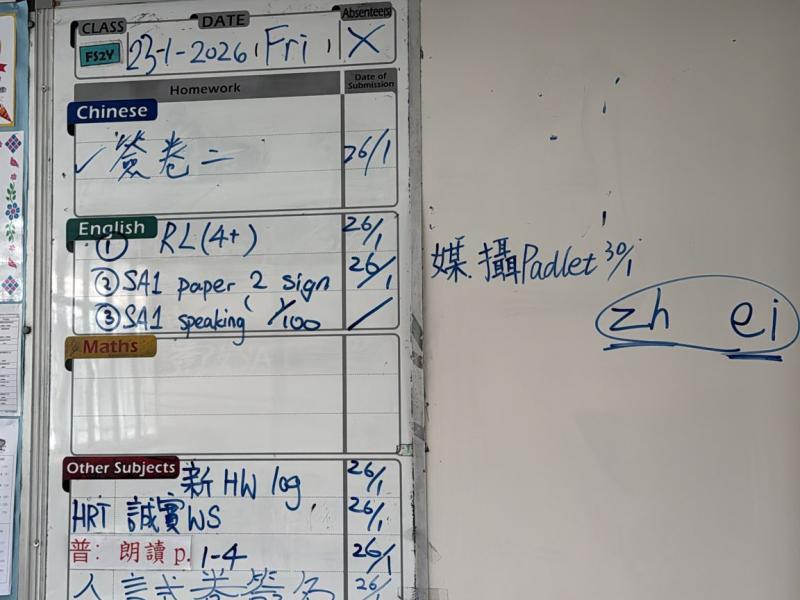 CLASS DATE Absentees
FS2Y 23-1-2026, Fri, X
Homework Date of Submission
Chinese
✓簽卷二 26/1
English
① RL(4+) 26/1
② SA1 paper 2 sign 26/1
③ SA1 speaking ( /100 /
Maths
Other Subjects
新 HW log 26/1
HRT 誠實WS 26/1
普: 朗讀 p. 1-4 26/1
人 試卷簽名 26/1
媒.攝Padlet 30/1
zh ei